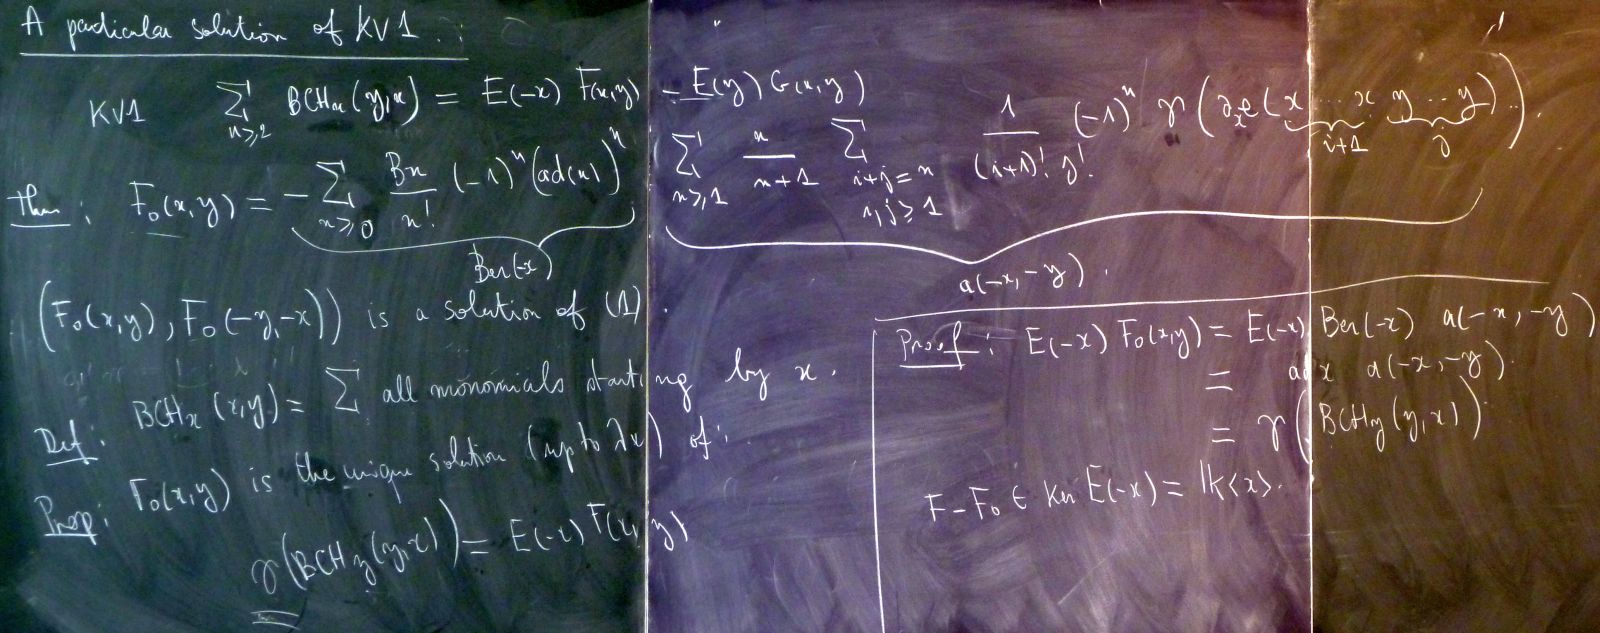 A particular solution of KV1 :
KV1 ∑_{n≥2} BCH_n(y,x) = E(-x) F(x,y) - E(y) G(x,y)
Then : F_0(x,y) = - ∑_{n≥0} B_n/n! (-1)^n (ad(x))^n ∑_{n≥1} n/(n+1) ∑_{i+j=n, i,j≥1} 1/((i+1)! j!) (-1)^n γ(∂_x e(x...x y...y)).
i+1 j
Ber(-x)
a(-x,-y).
(F_0(x,y), F_0(-y,-x)) is a solution of (1).
Def : BCH_x(x,y) = ∑ all monomials starting by x.
Prop : F_0(x,y) is the unique solution (up to λx) of :
γ(BCH_y(y,x)) = E(-x) F(x,y)
Proof : E(-x) F_0(x,y) = E(-x) Ber(-x) a(-x,-y)
= ad x a(-x,-y).
= γ(BCH_y(y,x))
F-F_0 ∈ Ker E(-x) = lk<x>.